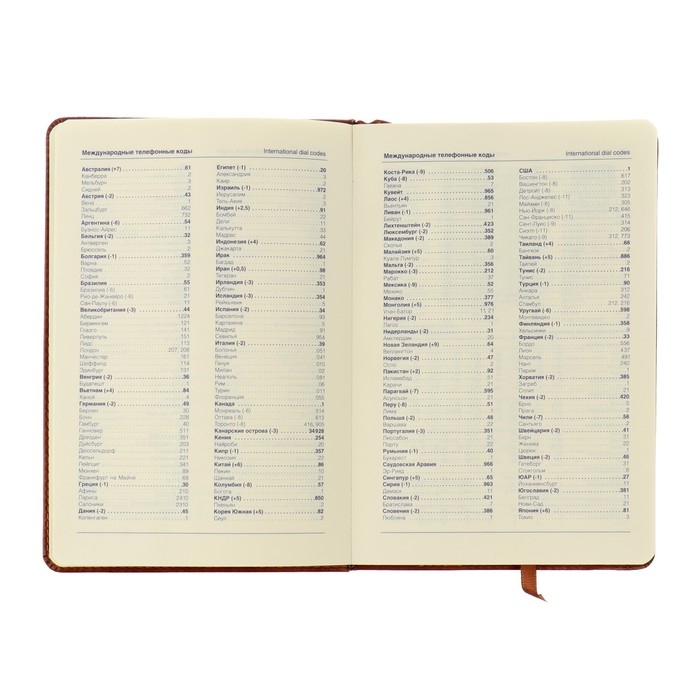 Международные телефонные коды International dial codes
Австралия (+7) 61
Канберра 2
Мельбурн 3
Сидней 2
Австрия (-2) 43
Вена 1
Зальцбург 662
Линц 732
Аргентина (-6) 54
Буэнос-Айрес 11
Бельгия (-2) 32
Антверпен 3
Брюссель 2
Болгария (-1) 359
Варна 52
Пловдив 32
София 2
Бразилия 55
Бразилиа (-6) 61
Рио-де-Жанейро (-6) 21
Сан-Паулу (-6) 11
Великобритания (-3) 44
Абердин 1224
Бирмингем 121
Глазго 141
Ливерпуль 151
Лидс 113
Лондон 207, 208
Манчестер 161
Шеффилд 114
Эдинбург 131
Венгрия (-2) 36
Будапешт 1
Вьетнам (+4) 84
Ханой 4
Германия (-2) 49
Берлин 30
Бонн 228
Гамбург 40
Ганновер 511
Дрезден 351
Дуйсбург 203
Дюссельдорф 211
Кельн 221
Лейпциг 341
Мюнхен 89
Франкфурт на Майне 69
Греция (-1) 30
Афины 210
Лариса 2410
Салоники 2310
Дания (-2) 45
Копенгаген 1
Египет (-1) 20
Александрия 3
Каир 2
Израиль (-1) 972
Иерусалим 2
Тель-Авив 3
Индия (+2,5) 91
Бомбей 22
Дели 11
Калькутта 33
Мадрас 44
Индонезия (+4) 62
Джакарта 21
Ирак 964
Багдад 1
Иран (+0,5) 98
Тегеран 21
Ирландия (-3) 353
Дублин 1
Исландия (-3) 354
Рейкьявик 5
Испания (-2) 34
Барселона 93
Картахена 5
Мадрид 91
Севилья 954
Италия (-2) 39
Болонья 051
Венеция 041
Генуя 010
Милан 02
Неаполь 081
Рим 06
Турин 011
Флоренция 055
Канада 1
Монреаль (-8) 514
Оттава (-8) 613
Торонто (-8) 416, 905
Канарские острова (-3) 34928
Кения 254
Найроби 20
Кипр (-1) 357
Никозия 22
Китай (+5) 86
Пекин 10
Шанхай 21
Колумбия (-8) 57
Богота 1
КНДР (+5) 850
Пхеньян 2
Корея Южная (+5) 82
Сеул 2
Международные телефонные коды International dial codes
Коста-Рика (-9) 506
Куба (-8) 53
Гавана 7
Кувейт 965
Лаос (+4) 856
Вьентьян 21
Ливан (-1) 961
Бейрут 1
Лихтенштейн (-2) 423
Люксембург (-2) 352
Македония (-2) 389
Скопье 2
Малайзия (+5) 60
Куала-Лумпур 3
Мальта (-2) 356
Марокко (-3) 212
Рабат 37
Мексика (-9) 52
Мехико 55
Монако 377
Монголия (+5) 976
Улан-Батор 11, 21
Нигерия (-2) 234
Лагос 1
Нидерланды (-2) 31
Амстердам 20
Новая Зеландия (+9) 64
Веллингтон 4
Норвегия (-2) 47
Осло 2
Пакистан (+2) 92
Исламабад 51
Карачи 21
Парагвай (-7) 595
Асунсьон 21
Перу (-8) 51
Лима 1
Польша (-2) 48
Варшава 22
Португалия (-3) 351
Лиссабон 21
Порту 22
Румыния (-1) 40
Бухарест 1
Саудовская Аравия 966
Эр-Рияд 1
Сингапур (+5) 65
Сирия (-1) 963
Дамаск 11
Словакия (-2) 421
Братислава 2
Словения (-2) 386
Любляна 1
США 1
Бостон (-8) 617
Вашингтон (-8) 202
Детройт (-8) 313
Лос-Анджелес (-11) 323
Майами (-8) 305
Нью-Йорк (-8) 212, 646
Сан-Франциско (-11) 415
Сент-Луис (-9) 314
Сиэтл (-11) 206
Чикаго (-9) 312, 773
Таиланд (+4) 66
Бангкок 2
Тайвань (+5) 886
Тайпей 2
Тунис (-2) 216
Тунис 71
Турция (-1) 90
Анкара 312
Анталья 242
Стамбул 212, 216
Уругвай (-6) 598
Монтевидео 2
Финляндия (-1) 358
Хельсинки 9
Франция (-2) 33
Бордо 556
Лион 437
Марсель 491
Нант 240
Париж 1
Хорватия (-2) 385
Загреб 1
Сплит 21
Чехия (-2) 420
Брно 5
Прага 2
Чили (-7) 56
Сантьяго 2
Швейцария (-2) 41
Берн 31
Женева 22
Цюрих 1
Швеция (-2) 46
Гетеборг 31
Стокгольм 8
ЮАР (-1) 27
Йоханнесбург 11
Югославия (-2) 381
Белград 11
Нови-Сад 21
Япония (+6) 81
Токио 3